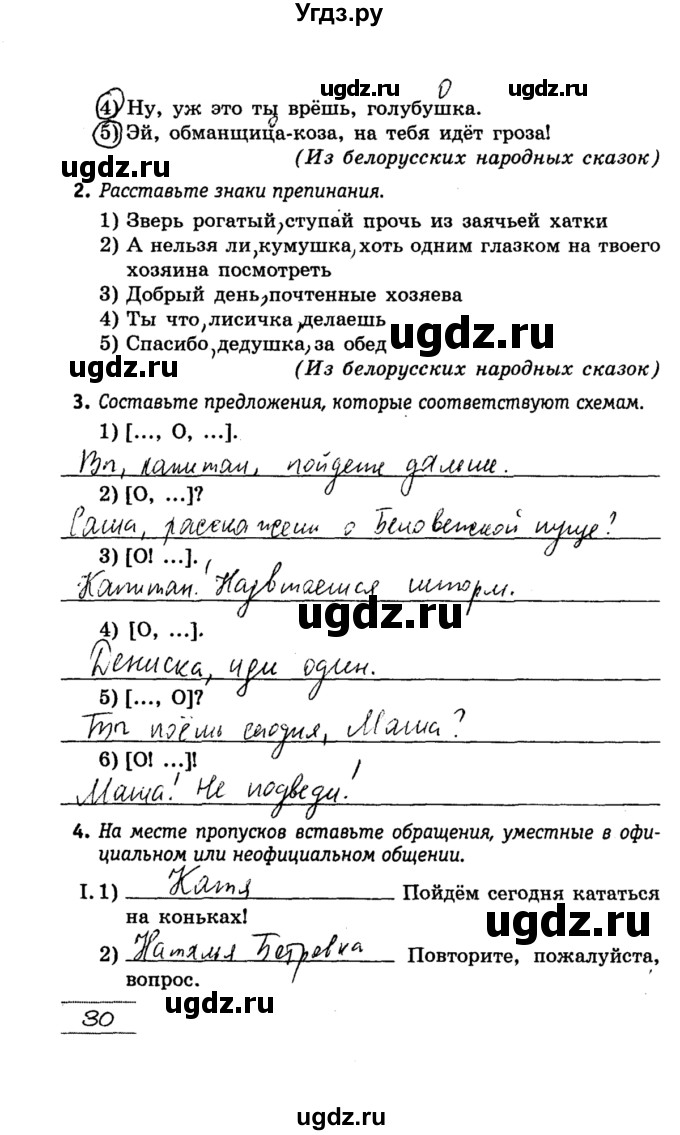 Угдз.ру
ugdz.ru ugdz.ru О
4) Ну, уж это ты врёшь, голубушка.
5) Эй, обманщица-коза, на тебя идёт гроза!
ugdz.ru
(Из белорусских народных сказок)
2. Расставьте знаки препинания.
1) Зверь рогатый, ступай прочь из заячьей хатки
2) А нельзя ли, кумушка, хоть одним глазком на твоего
хозяина посмотреть
3) Добрый день, почтенные хозяева
4) Ты что, лисичка, делаешь
5) Спасибо, дедушка, за обед
ugdz.ru
ugdz.ru
(Из белорусских народных сказок)
3. Составьте предложения, которые соответствуют схемам.
1) [..., О, ...].
Вы, капитан, пойдете дальше.
2) [О, ...]?
Саша, расскажешь о Беловежской пуще?
3) [О! ...].
Капитан! Надвигается шторм.
ugdz.ru
4) [О, ...].
Дениска, иди один.
5) [..., О]?
Ты поёшь сегодня, Маша?
6) [О! ...]!
Маша! Не подведи!
4. На месте пропусков вставьте обращения, уместные в офи-
циальном или неофициальном общении.
I. 1) Катя Пойдём сегодня кататься
на коньках!
ugdz.ru
2) Наталья Петровна Повторите, пожалуйста,
вопрос.
ugdz.ru
30
ugdz.ru